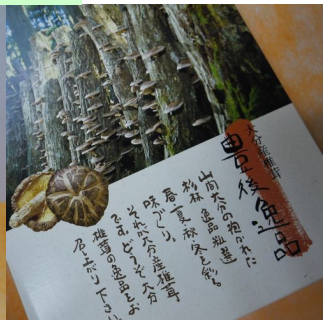 大分産椎茸
豊後逸品
山間大分の抱かれた
杉林 逸品粒選
春、夏、秋、冬を彩る。
味づくり。
それが大分産椎茸
です。どうぞ大分
椎茸の逸品をお
召上がり下さい